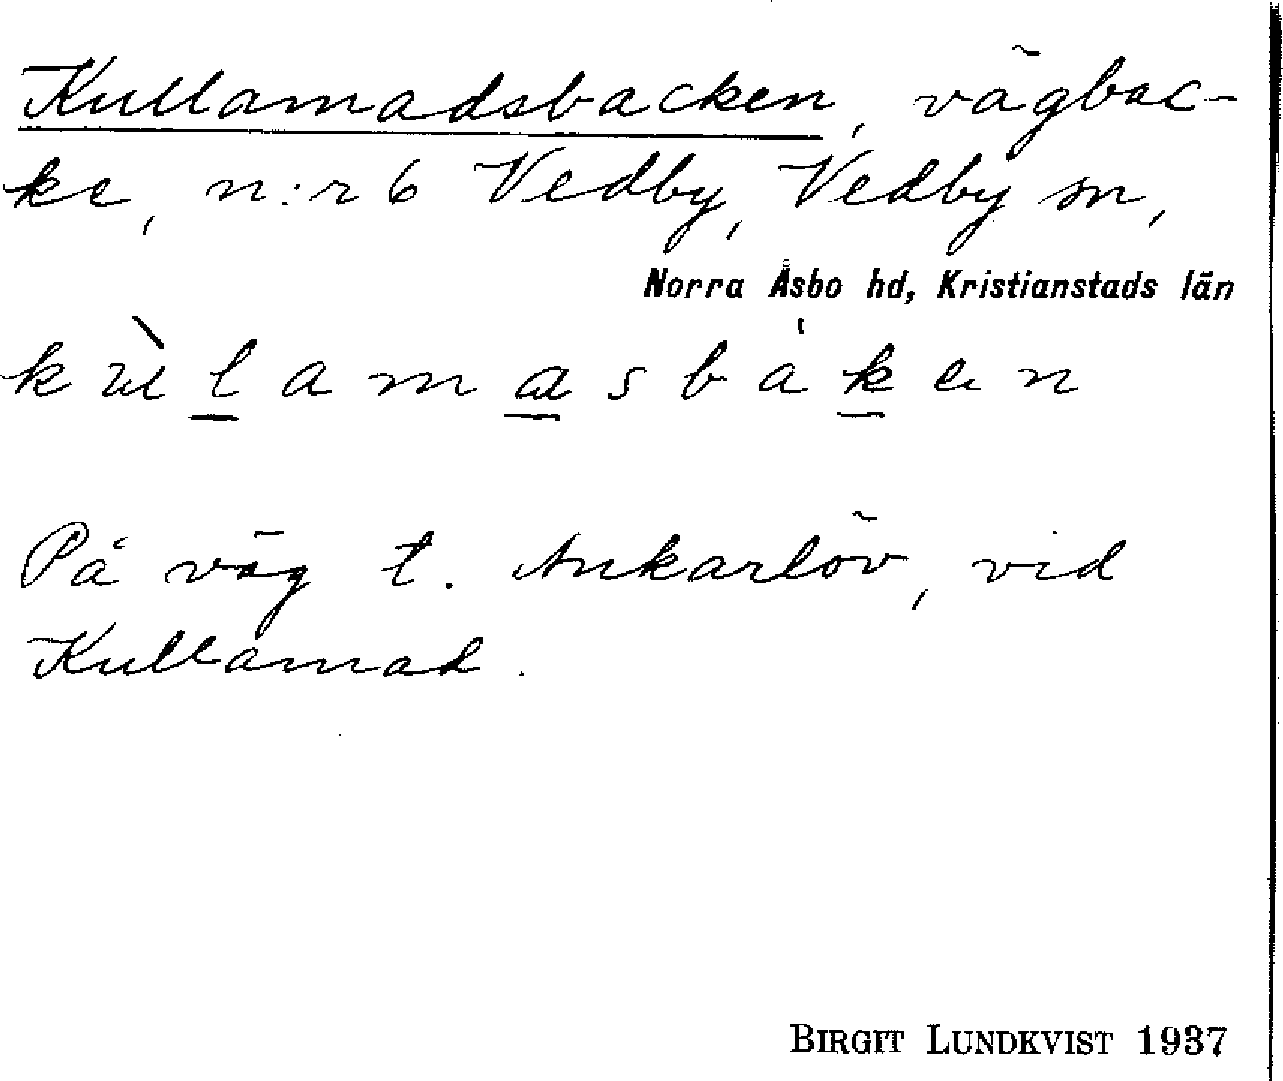 Kullamadsbacken, vägbac-
ke, n:r 6 Vedby, Vedby sn,
Norra Åsbo hd, Kristianstads län
På väg t. Ankarlöv, vid
Kullamad.
BIRGIT LUNDKVIST 1937